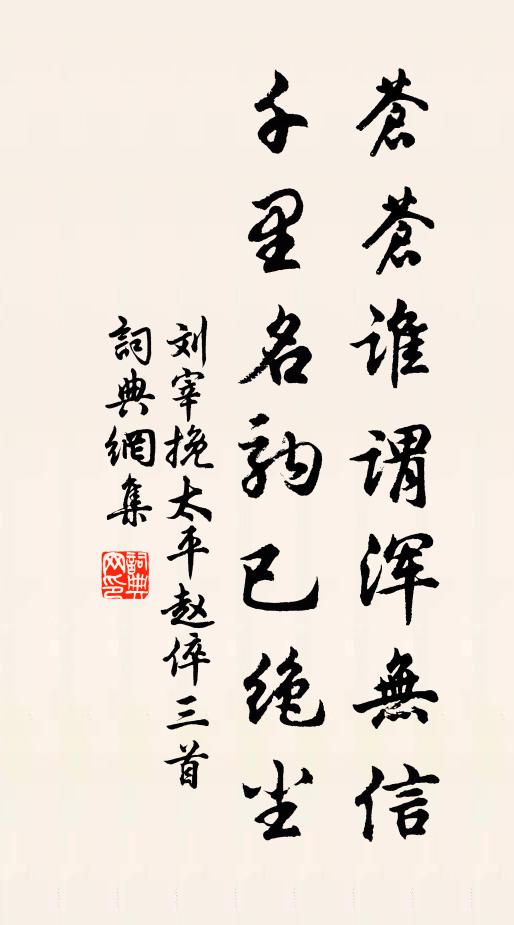 蒼蒼誰谓浑無信
千里名駒已绝尘
刘宰挽太平赵倅三首
詞典網集
詞典网印